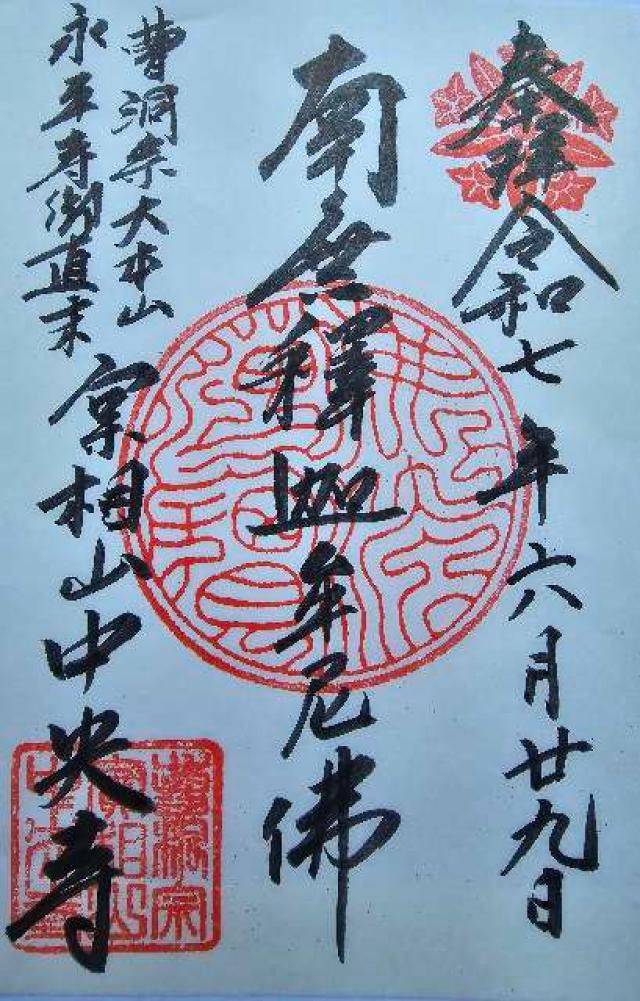 奉拝
令和七年六月廿九日
南無釋迦牟尼佛
曹洞宗大本山
永平寺御直末
実相山中央寺
曹洞宗
實相山
中央寺